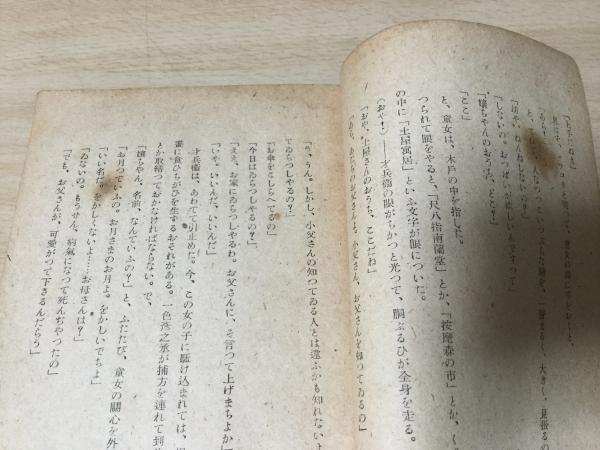 「しないの。おつぱいが欲しいんですつて」
「嬢ちやんのおうち、どこ？」
「ここ」
と、童女は、木戸の中を指した。
つられて眼をやると、「一尺八指南蘭堂」とか、「按摩森の市」とか、
の中に「土屋寓居」といふ文字が眼についた。
（おや！）――才兵衞の眼がちかつと光つて、胴ぶるひが全身を走る。
「おや、土屋さんのおうち、ここだね」
お父さんを知つてゐるの」
「う、うん。しかし、小父さんの知つてゐる人とは違ふかも知れないよ
てゐらつしやるの？」
「お傘をこしらへてるの」
「今日はゐらつしやるの？」
「ええ、お家にゐらつしやるわ。お父さんに、さ言つて上げまちよか」
「いや、いいんだ、いいんだ」
才兵衞は、あわてて引止めた。今、この女の子に駆け込まれては、
に食ひちがひを生ずるおそれがある。一色彦之丞が捕方を連れて到
とか取繕つておかなければならない。で、
「嬢ちやん、名前、なんていふの？」と、ふたたび、童女の關心を外
「お月つていふの。お月さまのお月よ。をかしいでちよ」
「いい名だ。をかしくないよ……お母さんは？」
「ゐないの。もうせん、病氣になつて死んぢやつたの」
「でも、お父さんが、可愛がつて下さるんだらう」